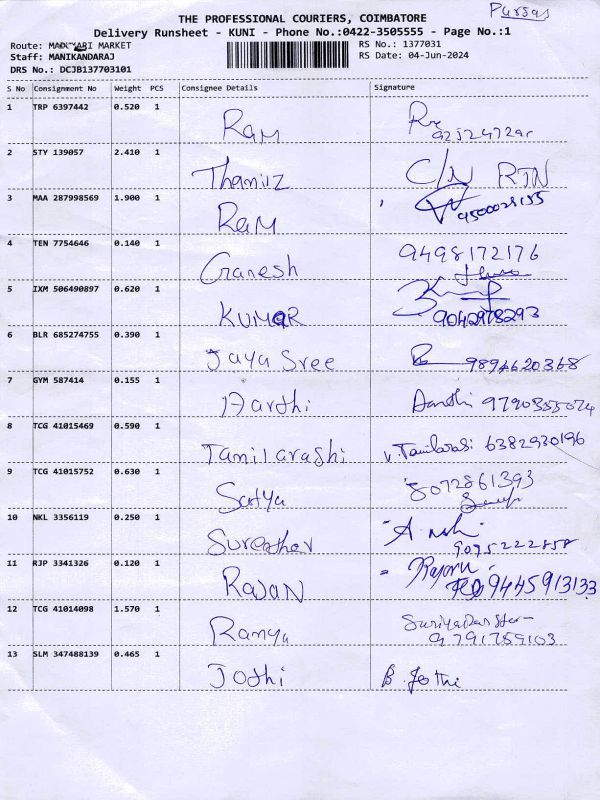 THE PROFESSIONAL COURIERS, COIMBATORE
Delivery Runsheet - KUNI - Phone No.:0422-3505555 - Page No.:1
Route: MARKET
RS No.: 1377031
Staff: MANIKANDARAJ
RS Date: 04-Jun-2024
DRS No.: DCJB137703101
S No Consignment No Weight PCS Consignee Details Signature
1 TRP 6397442 0.520 1 Ram
2 STY 139057 2.410 1 Thamilz C/N RJN
3 MAA 287998569 1.900 1 RaM
4 TEN 7754646 0.140 1 Ganesh 9498172176
5 IXM 506490897 0.620 1 KUMAR 9042978293
6 BLR 685274755 0.390 1 Jaya Sree 9894620368
7 GYM 587414 0.155 1 Aarthi 9790355074
8 TCG 41015469 0.590 1 Tamilarashi 6382930196
9 TCG 41015752 0.630 1 Satya 8072861393
10 NKL 3356119 0.250 1 9095222858
11 RJP 3341326 0.120 1 RAJAN 9445913133
12 TCG 41014098 1.570 1 Ramya 9791759103
13 SLM 347488139 0.465 1 Jothi B. Jothi